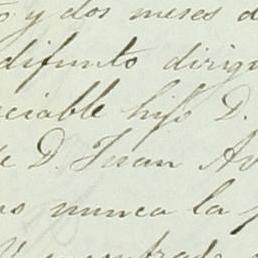 y dos meses d
difunto dirig
ciable hijo D.
e D. Juan Av
nunca la p